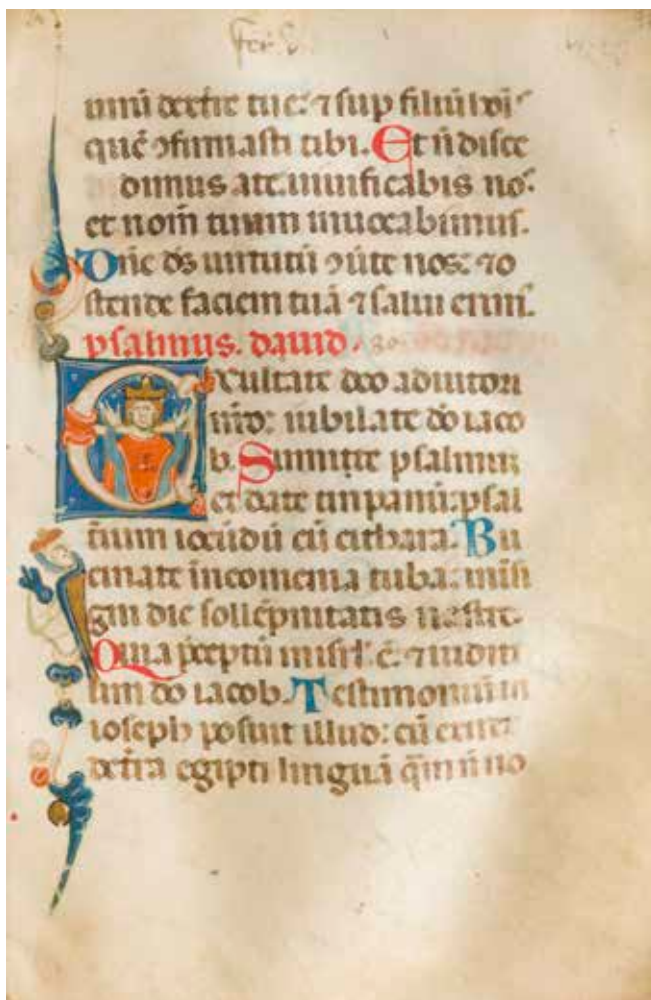 Fer.
minū dextre tue: ⁊ sup filiū hoı̄s
quē ↄfirmasti tibi. Et ñ disce
dimus a te. uiuificabis nos:
et nom̄ tuum inuocabimus.
Dn̄e ds̄ uirtutū ↄu̇te nos: ⁊ o
stende faciem tuā ⁊ salui erim᷒.
psalmus. dauid.
Exultate deo adiutori
nr̄o: iubilate dō iaco
b. Sumite psalmum
et date tinpanū: psal
tium iocūdū cū cithara. Bu
cinate in comenia tuba: insi
gni die sollēpnitatis nestre.
Quia p̄ceptū in isrl̄ ē. ⁊ iuditi
um dō iacob. Testimonium in
ioseph posuit illud: cū exiret
de tr̄a egipti linguā q̄m ñ no